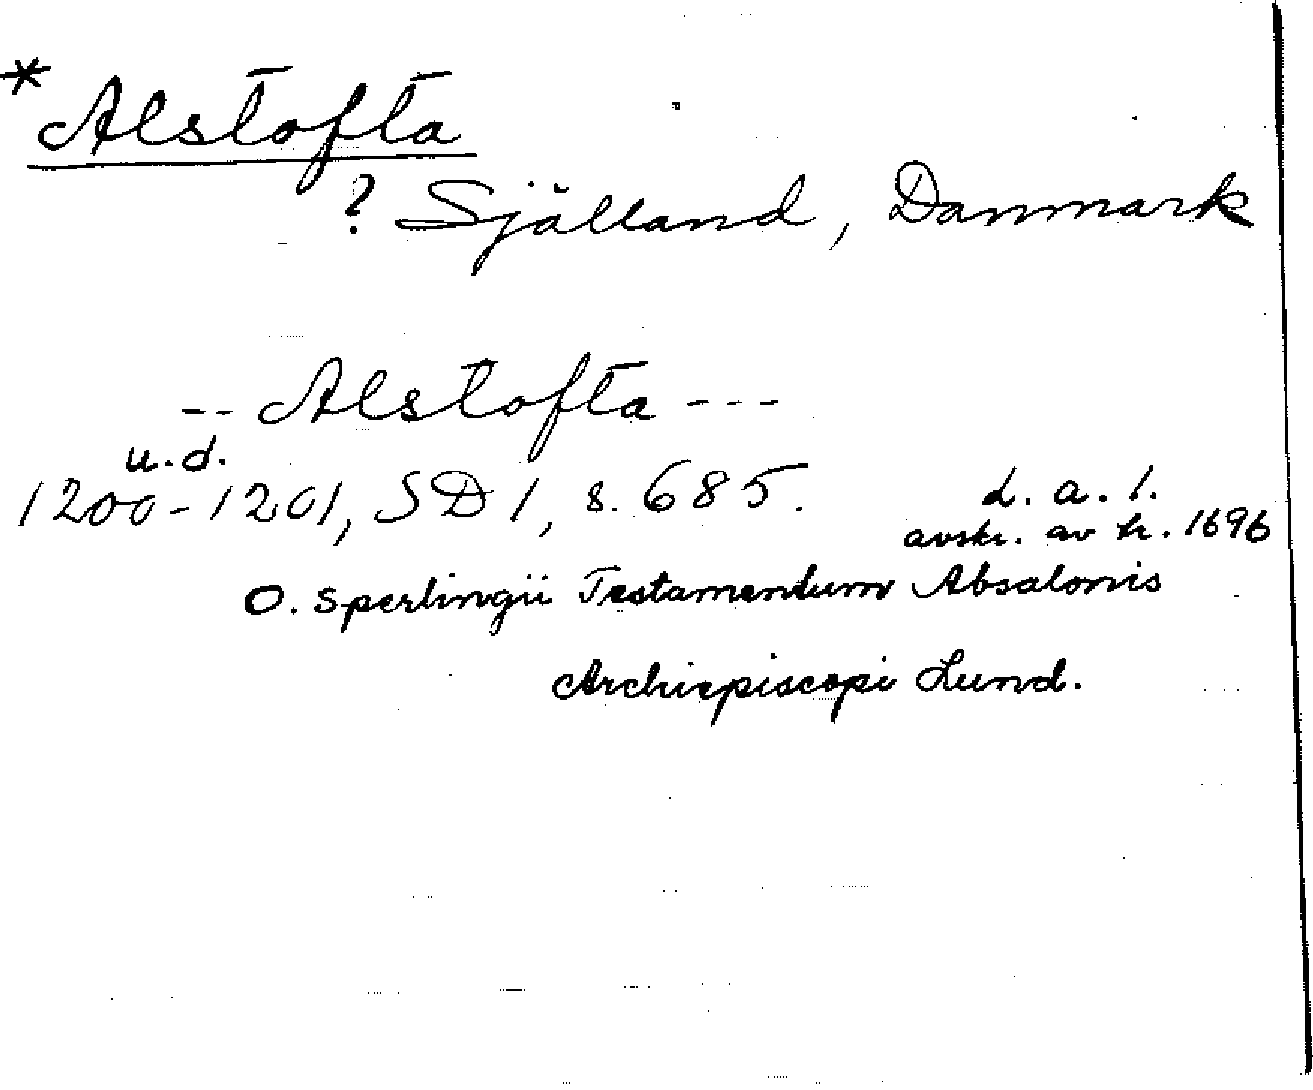 *Alstofta
? Själland, Danmark
-- Alstofta ---
u.d.
1200-1201, SD 1, s. 685. d. a. 1.
avskr. av tr. 1696
O. Sperlingii Testamentum Absalonis
Archiepiscopi Lund.